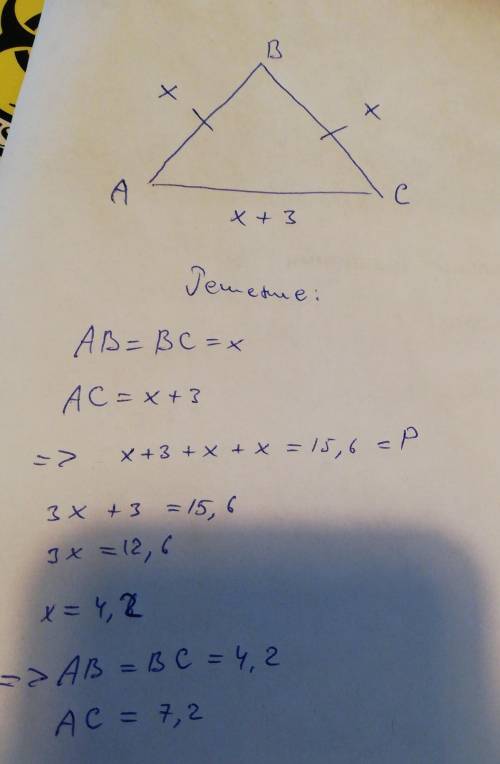 B
x
x
A
C
x + 3
Решение:
AB = BC = x
AC = x + 3
=> x + 3 + x + x = 15,6 = P
3x + 3 = 15,6
3x = 12,6
x = 4,2
=> AB = BC = 4,2
AC = 7,2